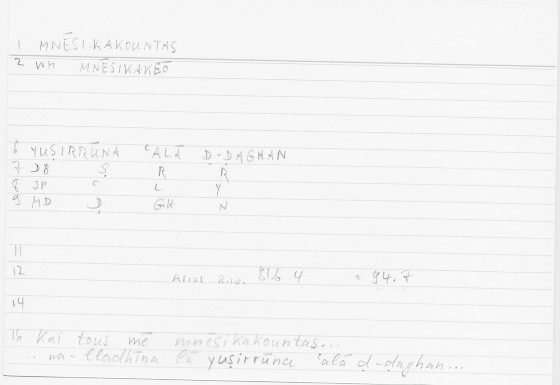 1 MNĒSIKAKOUNTAS
2 WM MNĒSIKAKEŌ
6 YUṢIRRŪNA ʿALĀ Ḍ-ḌAGHAN
7 DB Ṣ R R
8 JP ʿ L Y
9 MD Ḍ GH N
11
12 Arist Rhet. 81b 4 = 94.7
14
16 Kai tous mē mnēsikakountas...
.. wa-lladhīna lā yuṣirrūna ʿalā ḍ-ḍaghan...